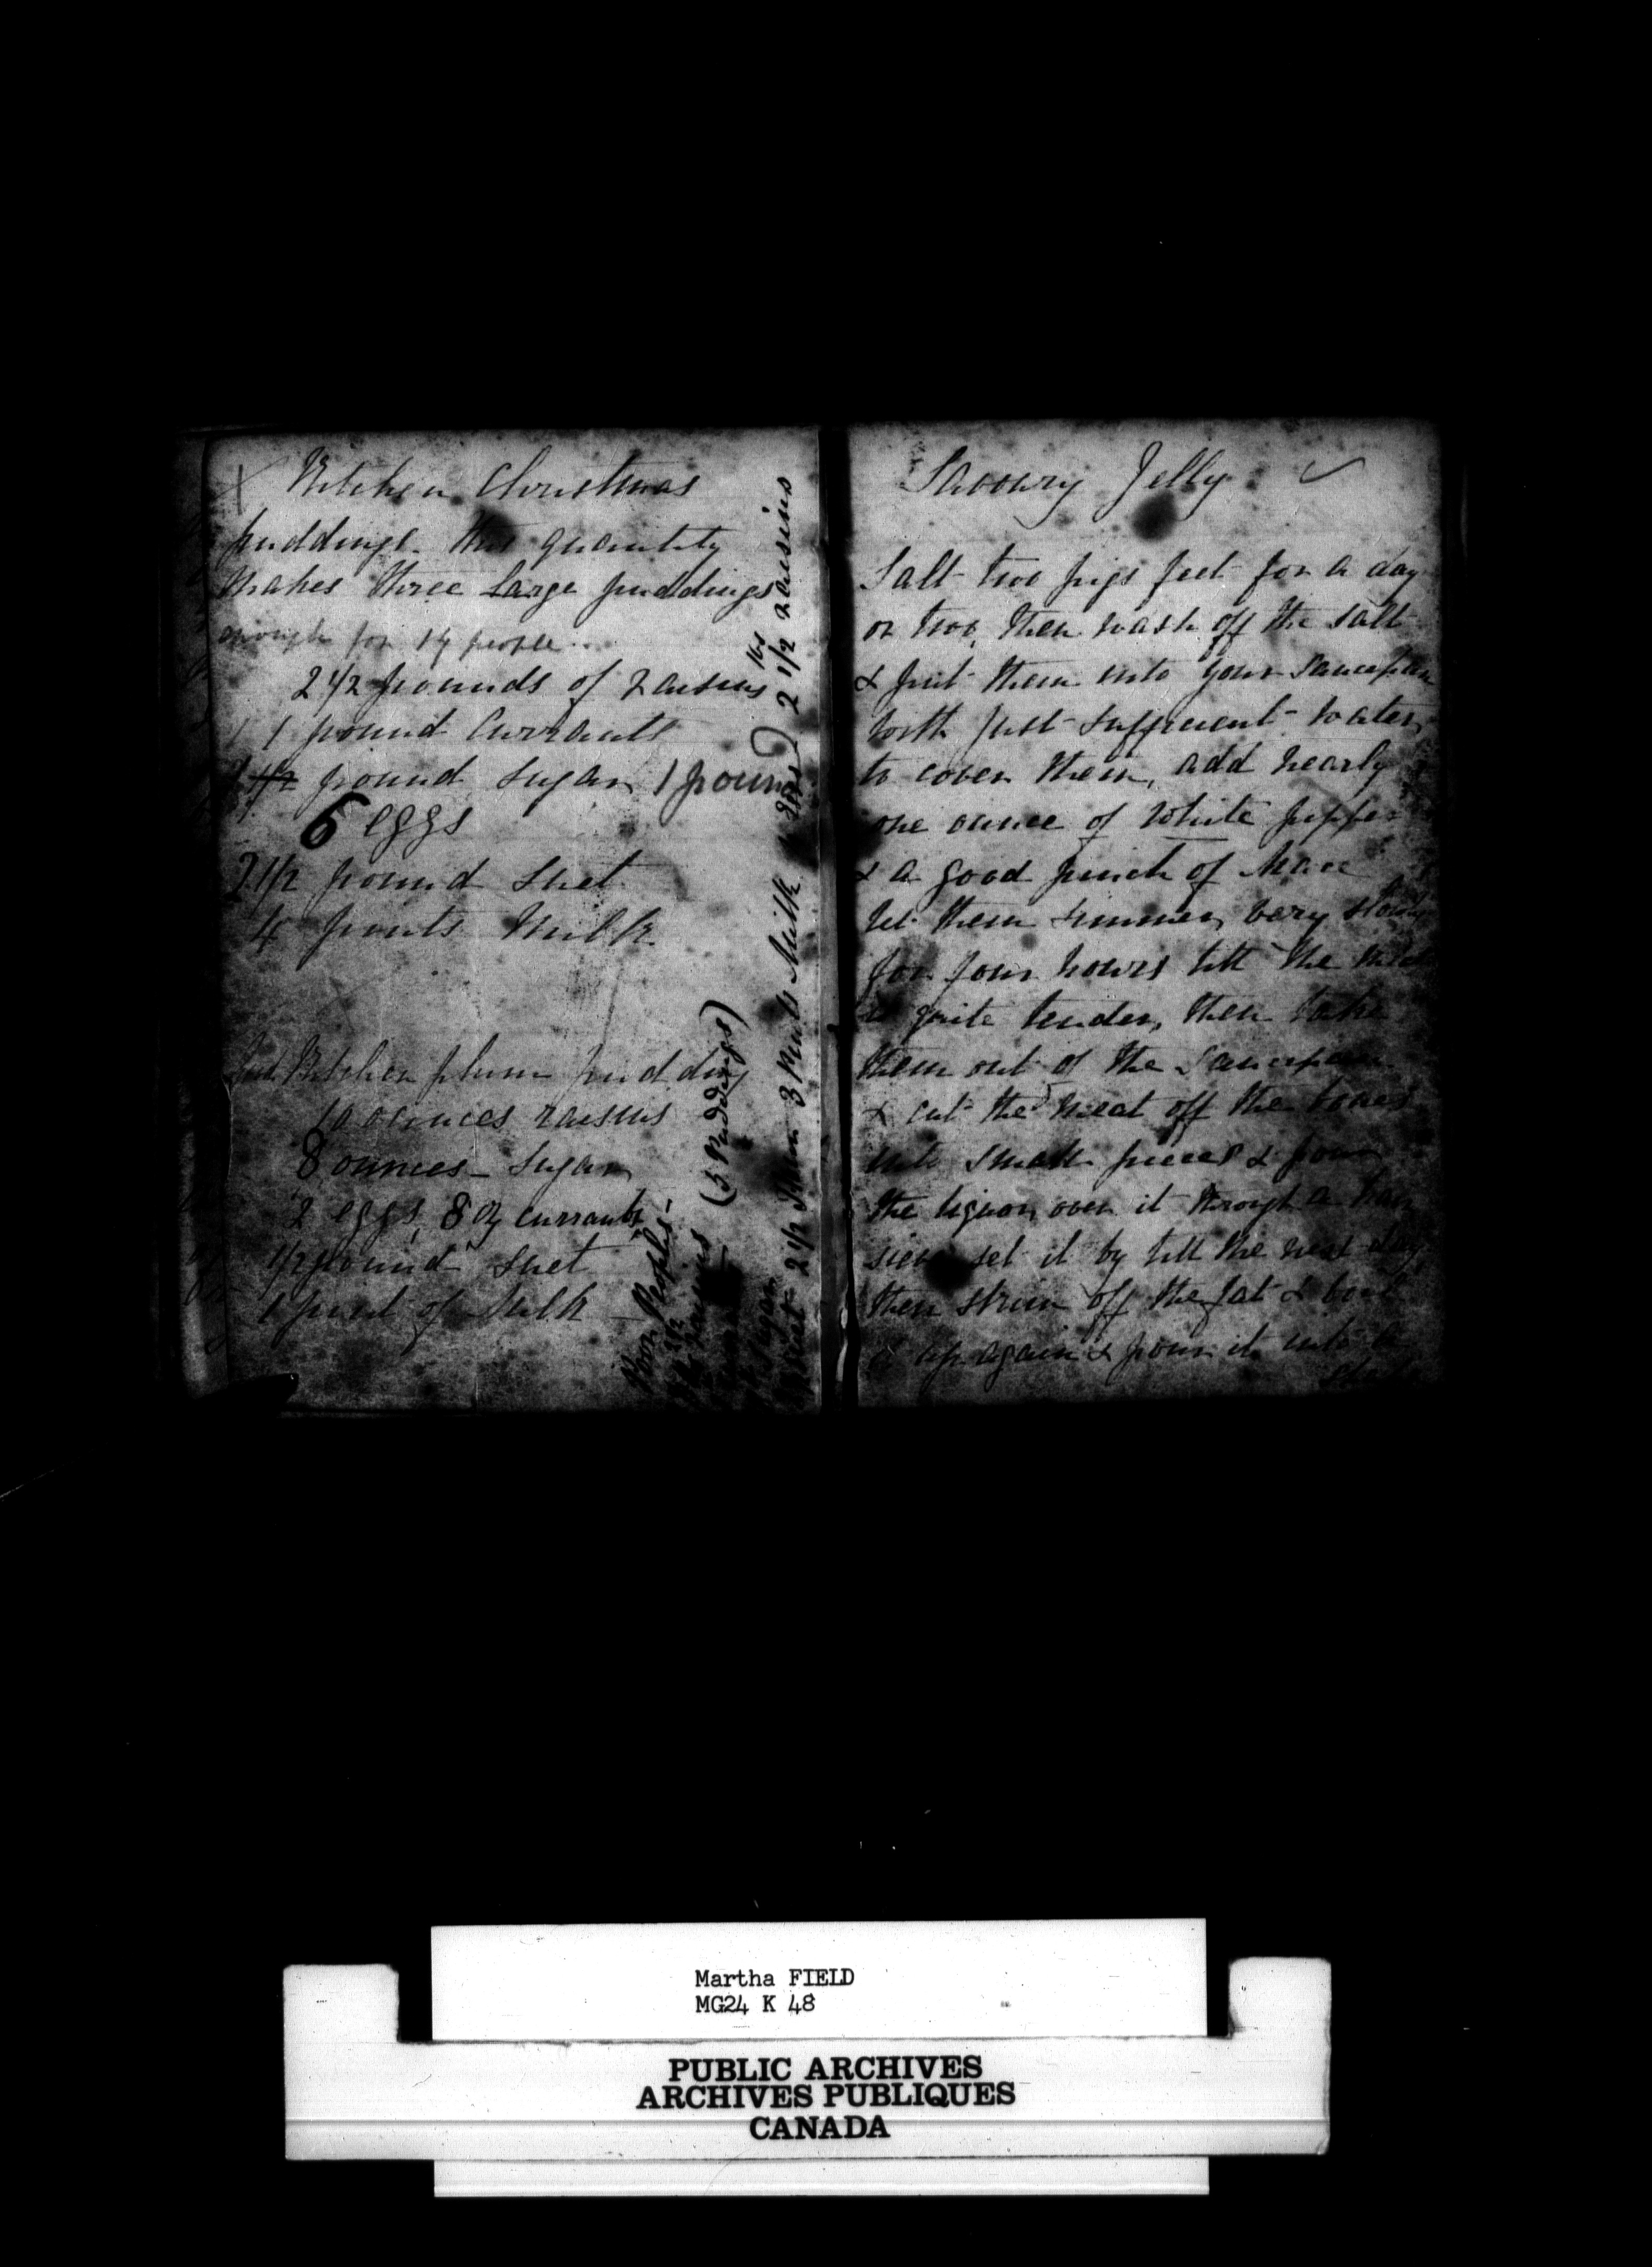 Kitchen Christmas
puddings. this quantity
Makes three large puddings
enough for 14 people
2 1/2 pounds of raisins
1 pound Currants
1/2 pound sugar 1 pound
6 eggs
2 1/2 pound suet
4 pints Milk
Kitchen plum pudding
10 ounces raisins
8 ounces sugar
2 eggs, 8 oz currants
1/2 pound suet
1 pint of Milk
(3 Puddings)
2 1/2 3 Pints Milk 2 1/2 lbs raisins
Savoury Jelly
Salt two pigs feet for a day
or two, then wash off the salt
& put them into your saucepan
with just sufficient water
to cover them, add nearly
one ounce of white pepper
& a good pinch of Mace
let them simmer very slowly
for four hours till the meat
is quite tender, then take
them out of the saucepan
& cut the meat off the bones
into small pieces & pour
the liquor over it through a hair
sieve set it by till the next day
then skim off the fat & boil
it up again & pour it into a
Martha FIELD
MG24 K 48
PUBLIC ARCHIVES
ARCHIVES PUBLIQUES
CANADA